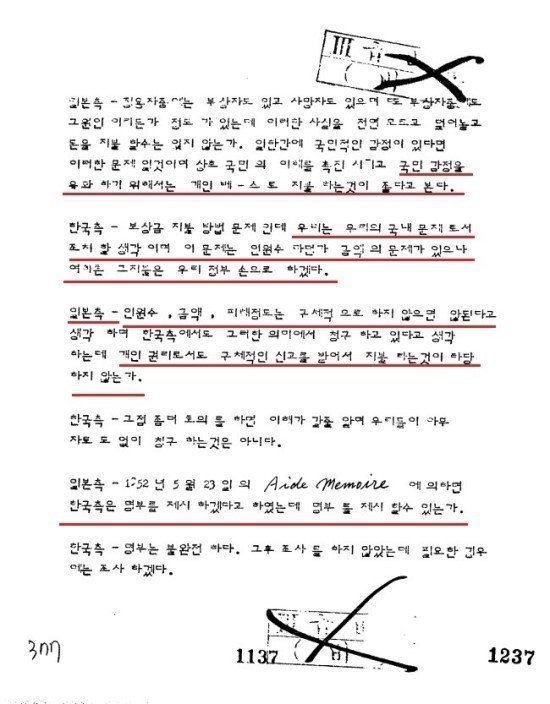 일본측 - 징용자중에는 부상자도 있고 사망자도 있으며 또 부상자중에도
그원인 이라든가 정도 가 있는데 이러한 사실을 전연 모르고 덮어놓고
돈을 지불 할수는 없지 않는가. 일한간에 국민적인 감정이 있다면
이러한 문제 일것이며 상호 국민 의 이해를 촉진 시키고 국민 감정을
유화 하기 위해서는 개인 베-스로 지불 하는것이 좋다고 본다.
한국측 - 보상금 지불 방법 문제 인데 우리는 우리의 국내 문제 로서
조처 할 생각 이며 이 문제는 인원수 라던가 금액 의 문제가 있으나
여하튼 그지불은 우리 정부 손으로 하겠다.
일본측 - 인원수 , 금액 , 피해정도는 구체적 으로 하지 않으면 않된다고
생각 하며 한국측에서도 그러한 의미에서 청구 하고 있다고 생각
하는데 개인 권리로서도 구체적인 신고를 받어서 지불 하는것이 타당
하지 않는가.
한국측 - 그점 좀더 토의 를 하면 이해가 갈줄 알며 우리들이 아무
자료 도 없이 청구 하는것은 아니다.
일본측 - 1952 년 5 월 23 일 의 Aide Memoire 에 의하면
한국측은 명부를 제시 하겠다고 하였는데 명부 를 제시 할수 있는가.
한국측 - 명부는 불완전 하다. 그후 조사 를 하지 않았는데 필요한 경우
에는 조사 하겠다.
1137
1237